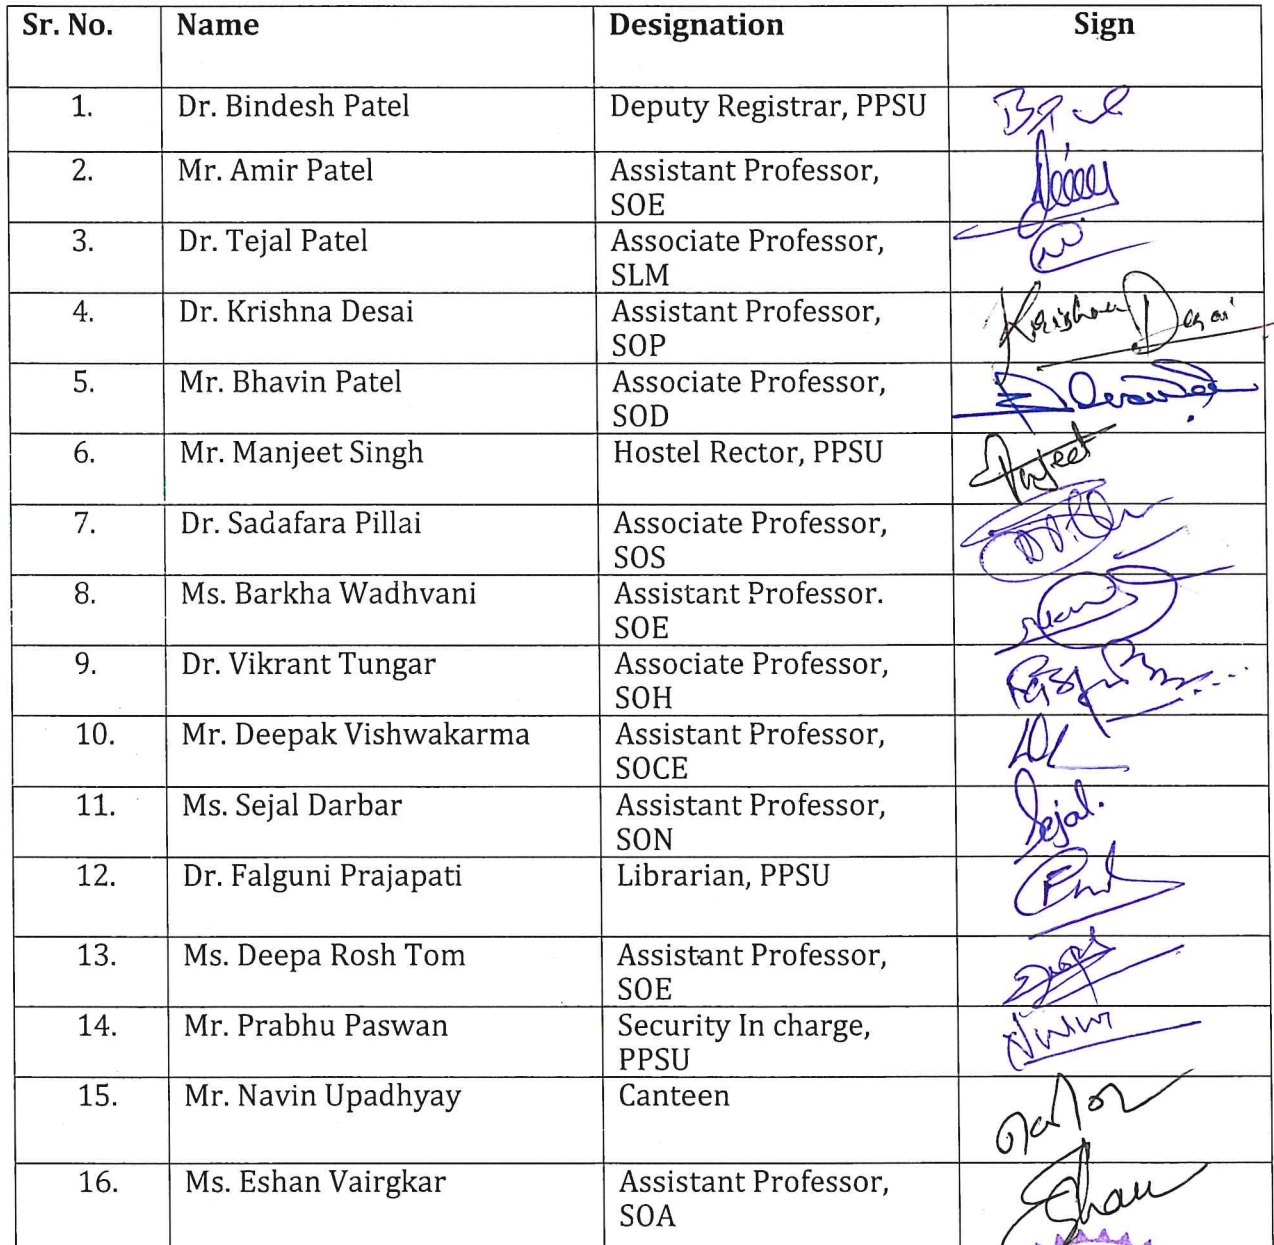 Sr. No. Name Designation Sign
1. Dr. Bindesh Patel Deputy Registrar, PPSU
2. Mr. Amir Patel Assistant Professor,
SOE
3. Dr. Tejal Patel Associate Professor,
SLM
4. Dr. Krishna Desai Assistant Professor, Krishna Desai
SOP
5. Mr. Bhavin Patel Associate Professor,
SOD
6. Mr. Manjeet Singh Hostel Rector, PPSU
7. Dr. Sadafara Pillai Associate Professor,
SOS
8. Ms. Barkha Wadhvani Assistant Professor.
SOE
9. Dr. Vikrant Tungar Associate Professor,
SOH
10. Mr. Deepak Vishwakarma Assistant Professor,
SOCE
11. Ms. Sejal Darbar Assistant Professor, Sejal.
SON
12. Dr. Falguni Prajapati Librarian, PPSU
13. Ms. Deepa Rosh Tom Assistant Professor,
SOE
14. Mr. Prabhu Paswan Security In charge,
PPSU
15. Mr. Navin Upadhyay Canteen
16. Ms. Eshan Vairgkar Assistant Professor,
SOA